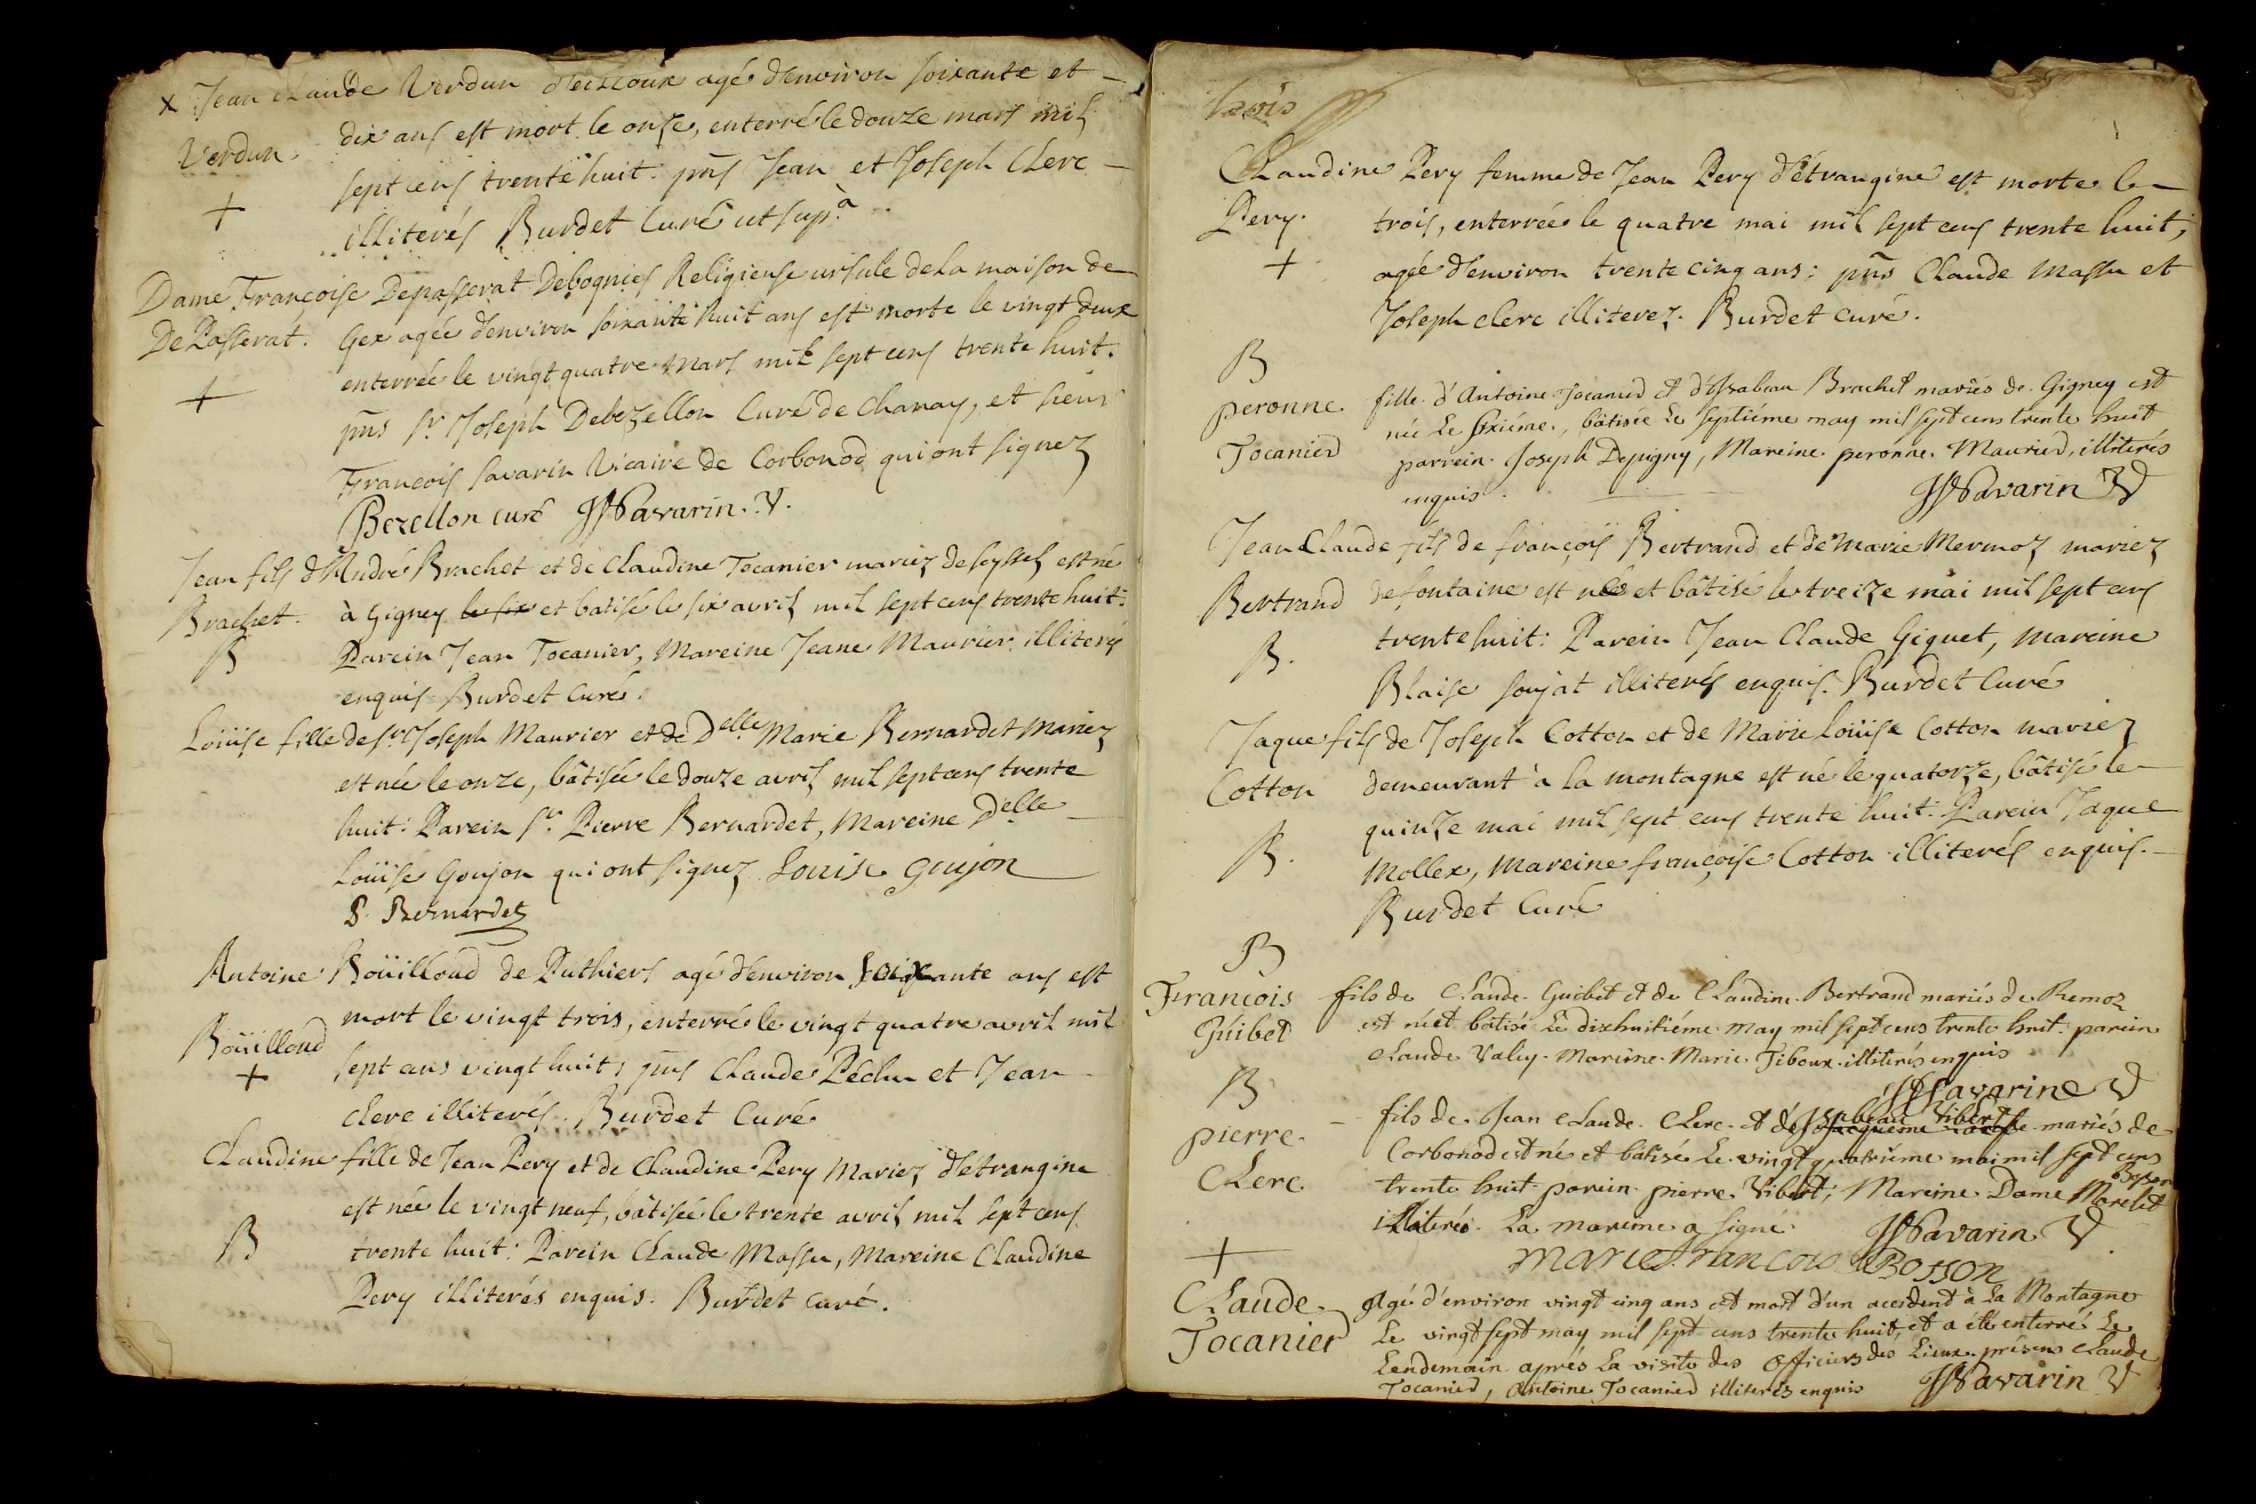 x Jean Claude Verdun d'eilloux agé d'environ soixante et
Verdun dix ans est mort le onse, enterré le douze mars mil
sept cens trente huit. pñs Jean et Joseph Clerc
+
illiterés Burdet Curé ut sup.à
Dame Françoise Depasserat Debognies Religieuse ursule de la maison de
De Passerat. Gex agée d'environ soixante huit ans est morte le vingt deux
+ enterrée le vingt quatre mars mil sept cens trente huit.
pñs Sr. Joseph Debezellon Curé de Chanay, et sieur
François Savarin Vicaire de Corbonod qui ont signez
Bezellon curé Savarin. V.
Jean fils d'André Brachet et de Claudine Tocanier mariez de seyssel est né
Brachet. à Gigney le six et batisé le six avril mil sept cens trente huit:
B Parein Jean Tocanier, Mareine Jeane Maurier illiterés
enquis Burdet Curé.
Loüise fille de Sr. Joseph Maurier et de Delle Marie Bernardet Mariez
est née le onze, bâtisée le douze avril mil sept cens trente
huit: Parein Sr. Pierre Bernardet, Mareine Delle
Loüise Goujon qui ont signez Louise goujon
P. Bernardet
Antoine Boüilloud de Puthiers agé d'environ soixante ans est
mort le vingt trois, enterré le vingt quatre avril mil
Boüilloud sept ans vingt huit; pñs Claude Péclu et Jean
+
clerc illiterés. Burdet Curé
Claudine fille de Jean Pery et de Claudine Pery Mariez d'étrangine
est née le vingt neuf, bâtisée le trente avril mil sept cens
B trente huit: Parein Claude Massu, Mareine Claudine
Pery illiterés enquis. Burdet curé.
trois
Claudine Pery femme de Jean Pery d'étrangine est morte le
Pery. trois, enterrée le quatre mai mil sept cens trente huit;
+ agée d'environ trente cinq ans: pñs Claude Massu et
Joseph clerc illiterez. Burdet curé.
B
peronne fille d'Antoine Tocanier et d'Isabeau Brachet mariés de Gigney est
née le sixiéme, bâtisée le septieme may mil sept cens trente huit
Tocanier parrein Joseph Depigny, Mareine peronne Maurier, illiterés
enquis. Savarin V
Jean Claude fils de françois Bertrand et de Marie Mermoz mariez
Bertrand de fontaine est né et bâtisé le treize mai mil sept cens
B. trente huit: Parein Jean Claude Giguet, mareine
Blaise soujat illiterés enquis. Burdet Curé
Jaque fils de Joseph Cotton et de Marie Loüise Cotton mariez
Cotton demeurant à la montagne est né le quatorze, bâtisé le
quinze mai mil sept cens trente huit: Parein Jaque
B. Mollex, Mareine françoise Cotton illiterés enquis.
Burdet Curé
B
François fils de Claude Guibet et de Claudine Bertrand mariés de Remoz
Guibet est né et bâtisé le dixhuitiéme may mil sept cens trente huit. parein
Claude Valey. Mareine Marie Tiboux illiterés enquis
Savarine V
B
pierre fils de Jean Claude Clerc et de Isabeau Vibert mariés de
Corbonod est né et bâtisé le vingt quatriéme mai mil sept cens
Clerc trente huit parein pierre Vibert, Mareine Dame Boson
Marelet
illiterés. La mareine a signé. Savarin V
marie francois Bosson
+
Claude Agé d'environ vingt cinq ans est mort d'un accident à la Montagne
Tocanier le vingt sept may mil sept cens trente huit, et a été enterré le
Lendemain aprés la visite des officiers des Lieux. présens Claude
Tocanier, Antoine Tocanier illiterés enquis Savarin V